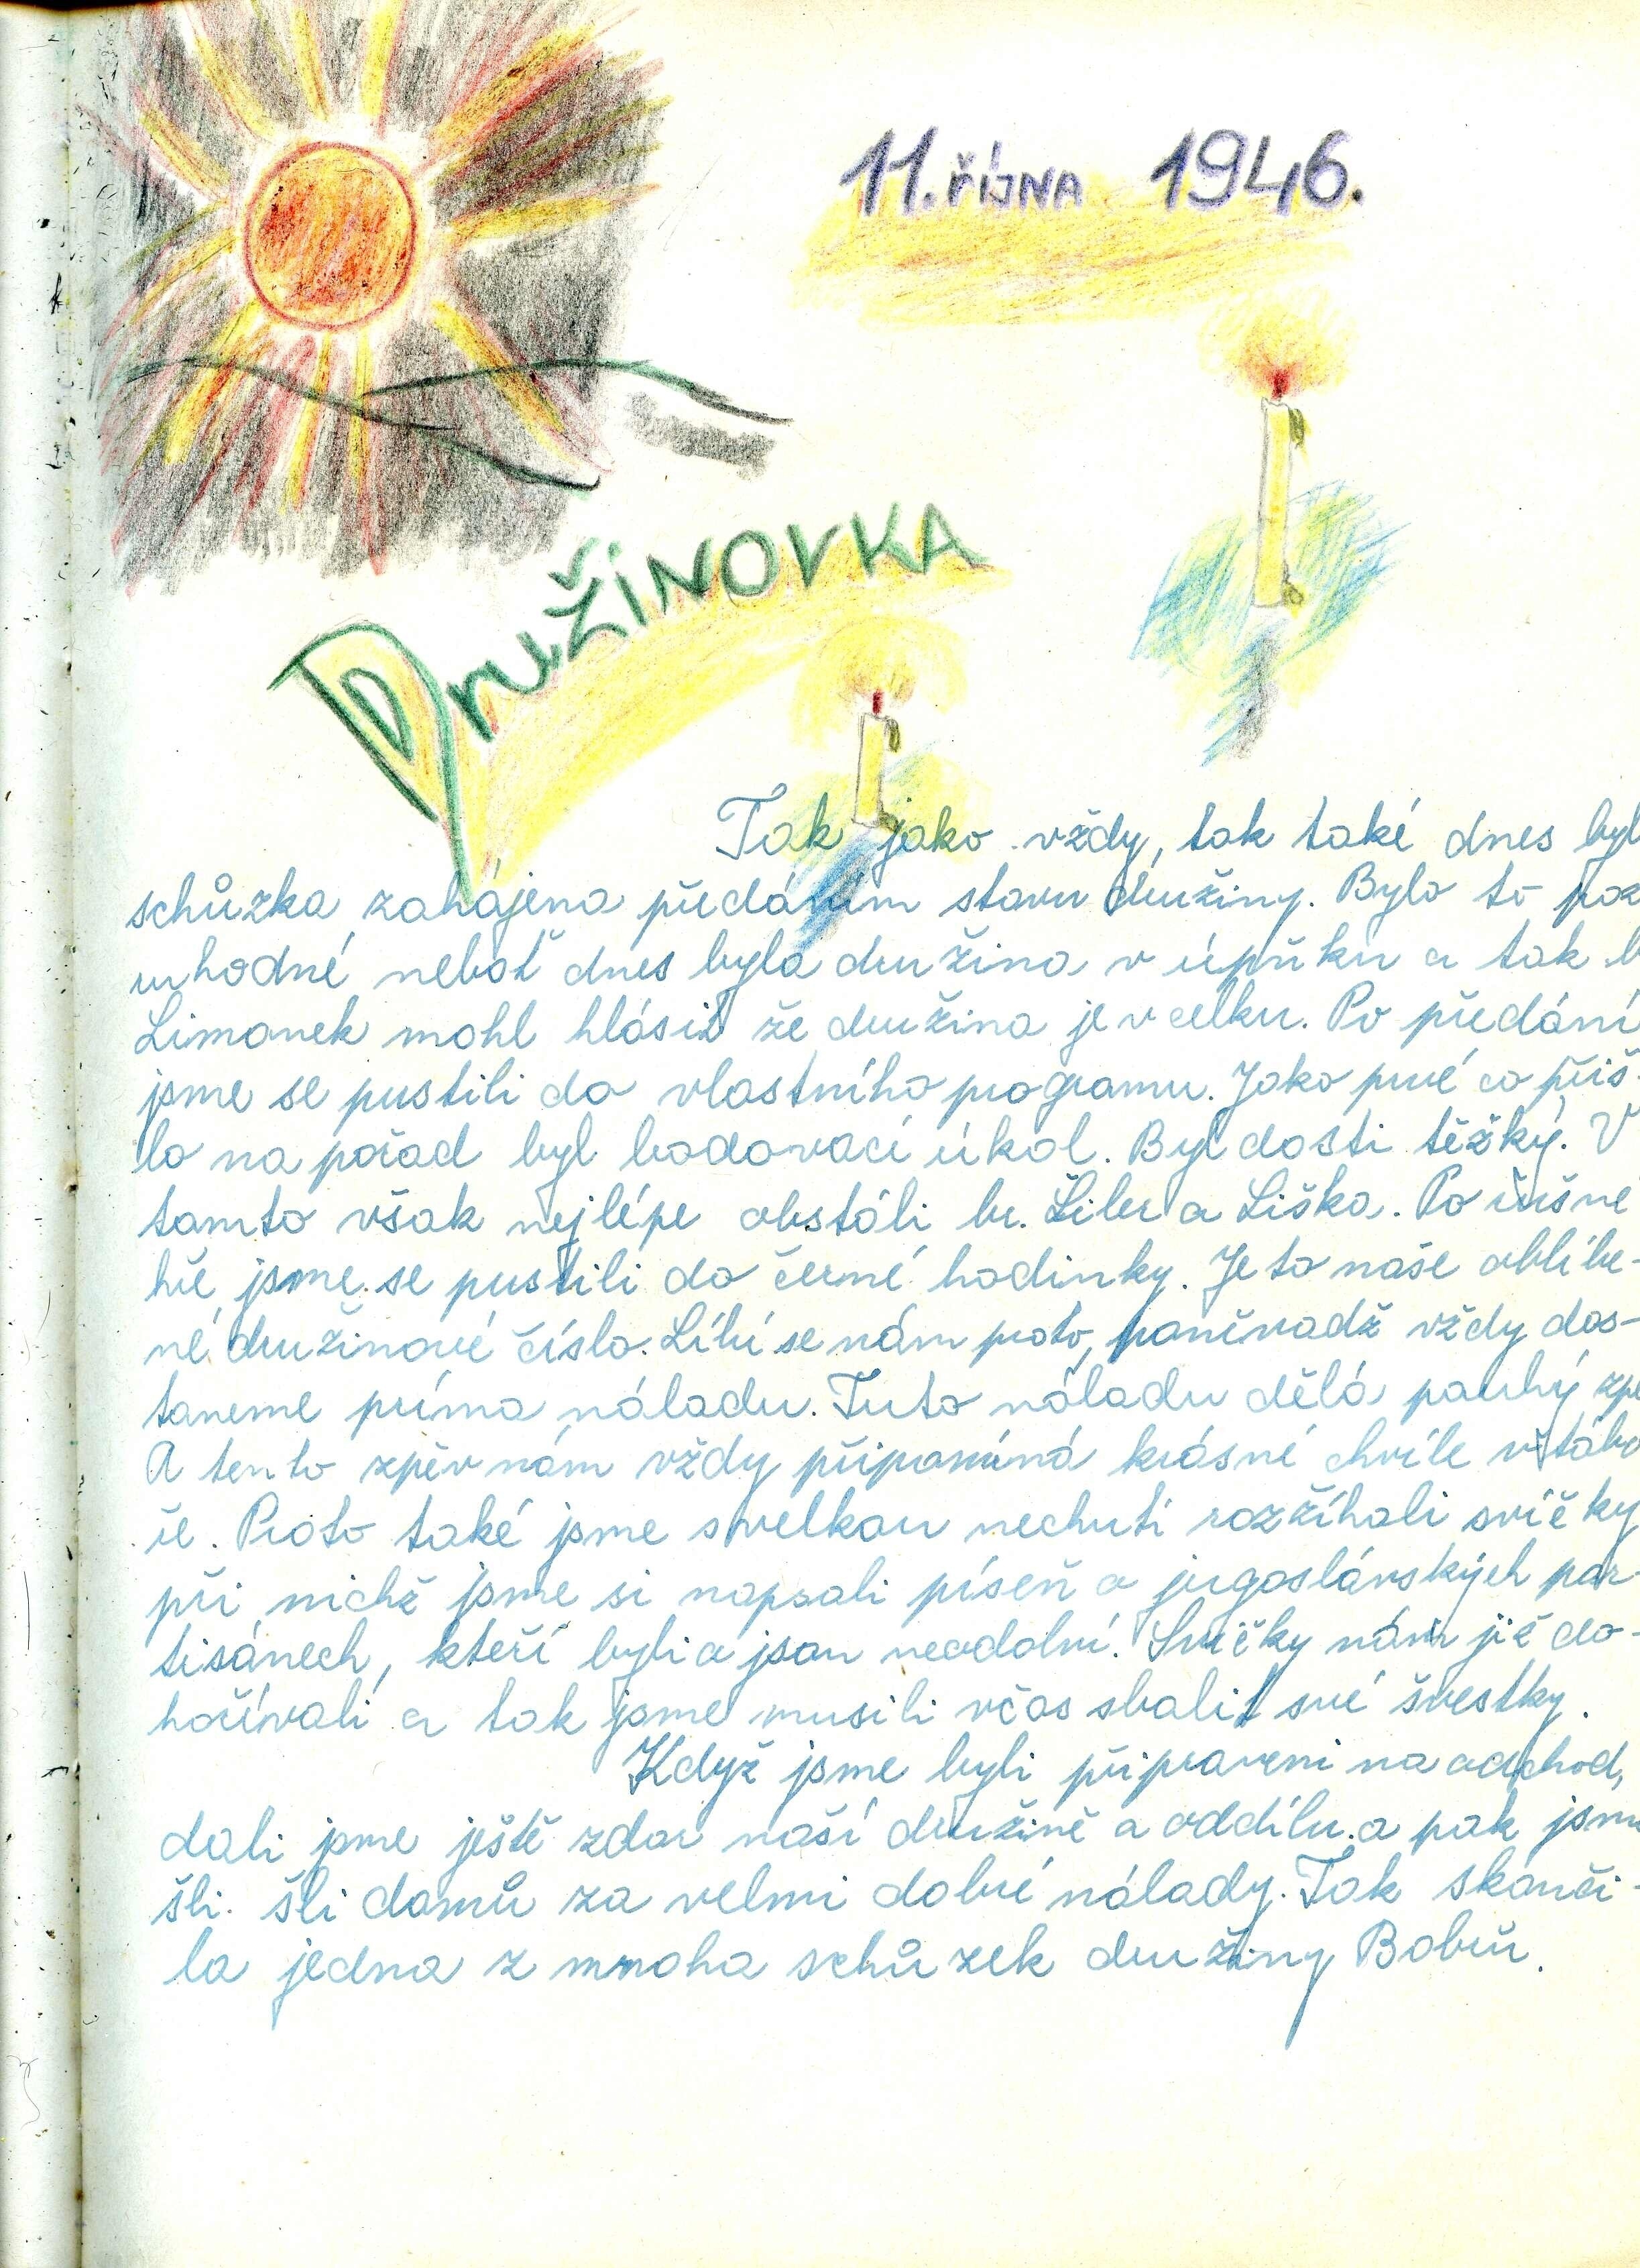 11. října 1946.
Družinovka
Tak jako vždy, tak také dnes byl
schůzka zahájena předáním stavu družiny. Bylo to poz
vhodné neboť dnes byla družina v úplňku a tak b
Limonek mohl hlásit že družina je v celku. Po předání
jsme se pustili do vlastního programu. Jako prvé co přiš-
lo na pořad byl bodovací úkol. Byl dosti těžký. V
tomto však nejlépe obstáli br. Šiler a Liška. Po
hře jsme se pustili do černé hodinky. Je to naše oblíbe-
né družinové číslo. Líbí se nám proto, poněvadž vždy dos-
taneme príma náladu. Tuto náladu dělá pouhý zpě
A tento zpěv nám vždy připomíná krásné chvíle v tábo
ře. Proto také jsme s velkou nechutí rozžíhali svíčky
při nichž jsme si napsali píseň o jugoslávských par-
tisánech, kteří byli a jsou neodolní. Svíčky nám již do-
hořívali a tak jsme musili včas sbalit své švestky.
Když jsme byli připraveni na odchod,
dali jsme ještě zdar naší družině a oddílu a pak jsme
šli. šli domů za velmi dobré nálady. Tak skonči-
la jedna z mnoha schůzek družiny Bobrů.